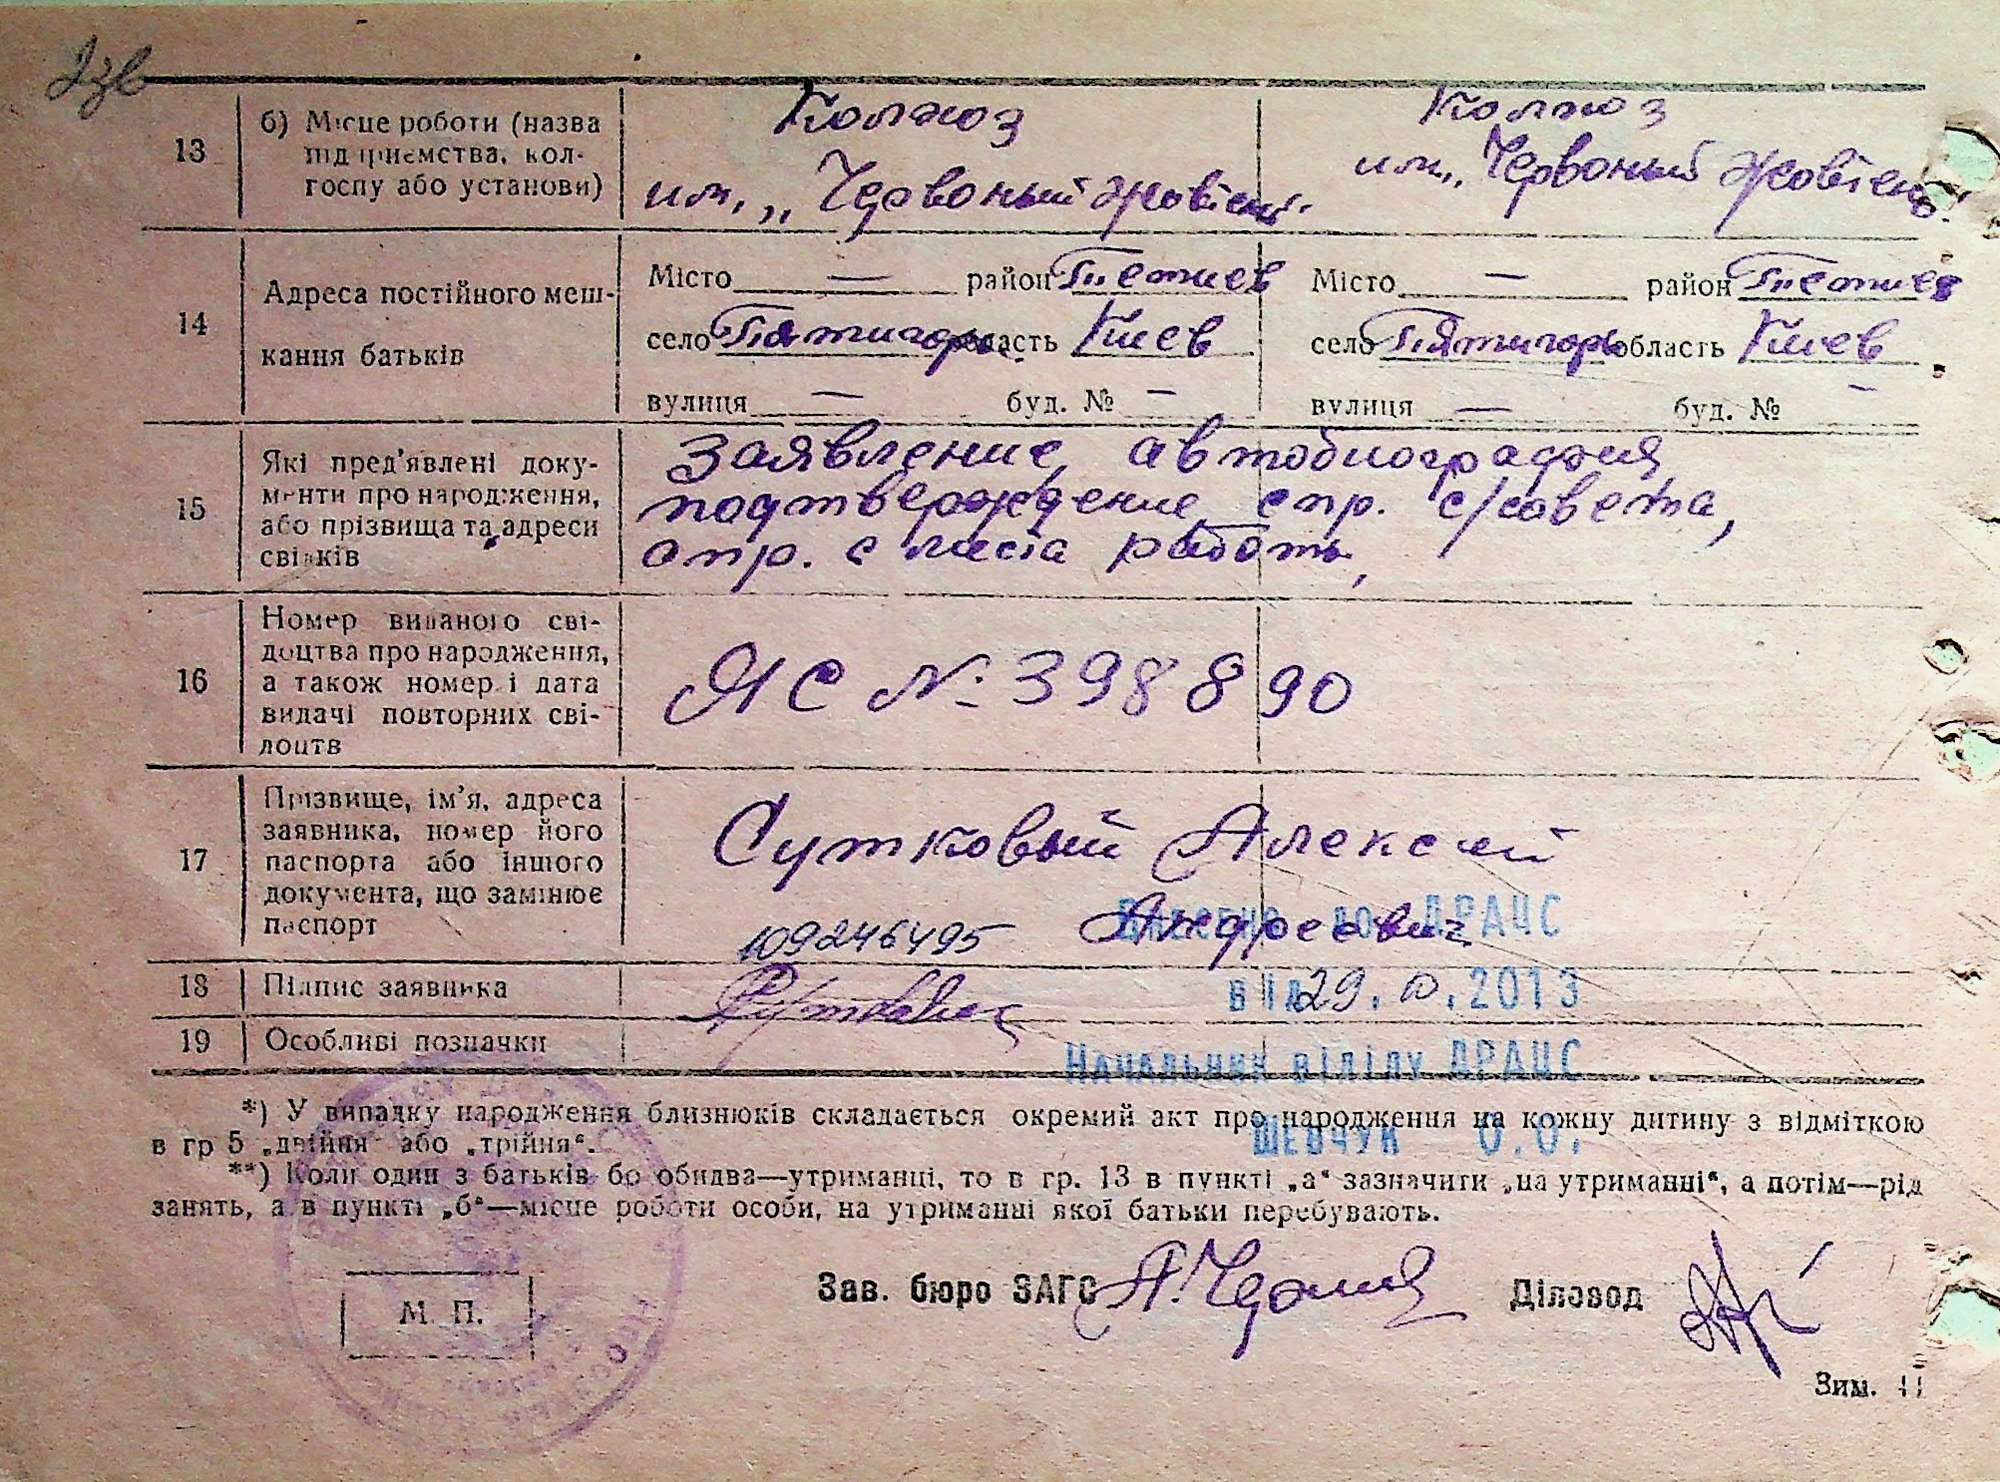 13 б) Місце роботи (назва Колхоз Колхоз
підприємства, кол-
госпу або установи) им. „Червоный жовтень" им. „Червоный жовтень"
14 Адреса постійного меш- Місто — район Тетиев Місто — район Тетиев
кання батьків село Пятигоры область Киев село Пятигоры область Киев
вулиця — буд. № — вулиця — буд. № —
15 Які пред'явлені доку- Заявление, автобиография
менти про народження, подтверждение, спр. с/совета,
або прізвища та адреси
свідків спр. с места работы,
16 Номер виданого сві-
доцтва про народження,
а також номер і дата ЯС № 398890
видачі повторних сві-
доцтв
17 Прізвище, ім'я, адреса
заявника, номер його Сутковый Алексей
паспорта або іншого
документа, що замінює Андреевич
паспорт 109246495
Внесено до ДРАЦС
18 Підпис заявника
від 29.10.2013
19 Особливі позначки
Начальник відділу ДРАЦС
*) У випадку народження близнюків складається окремий акт про народження на кожну дитину з відміткою
в гр 5 „двійня" або „трійня".
Шевчук О.О.
**) Коли один з батьків бо обидва—утриманці, то в гр. 13 в пункті „а" зазначити „на утриманні", а потім—рід
занять, а в пункті „б"—місце роботи особи, на утриманні якої батьки перебувають.
Зав. бюро ЗАГС Діловод
М. П.
Зим.